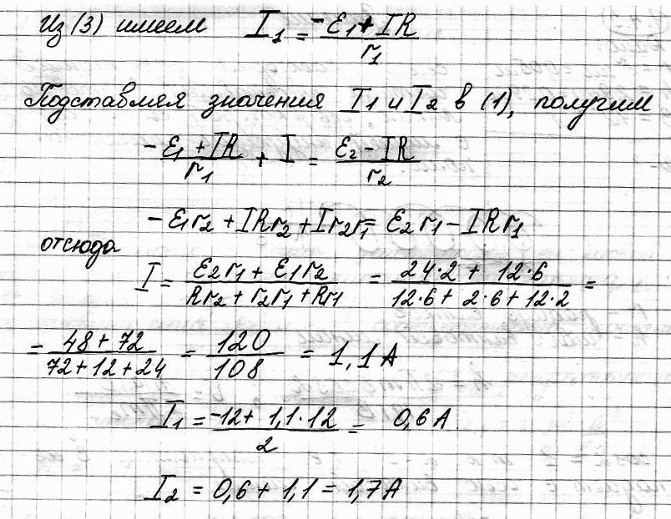 Из (3) имеем I₁ = (-ℰ₁ + IR)/r₁
Подставляя значения I₁ и I₂ в (1), получим
(-ℰ₁ + IR)/r₁ + I = (ℰ₂ - IR)/r₂
-ℰ₁r₂ + IRr₂ + Ir₂r₁ = ℰ₂r₁ - IRr₁
отсюда
I = (ℰ₂r₁ + ℰ₁r₂)/(Rr₂ + r₂r₁ + Rr₁) = (24·2 + 12·6)/(12·6 + 2·6 + 12·2) =
= (48 + 72)/(72 + 12 + 24) = 120/108 = 1,1 А
I₁ = (-12 + 1,1·12)/2 = 0,6 А
I₂ = 0,6 + 1,1 = 1,7 А